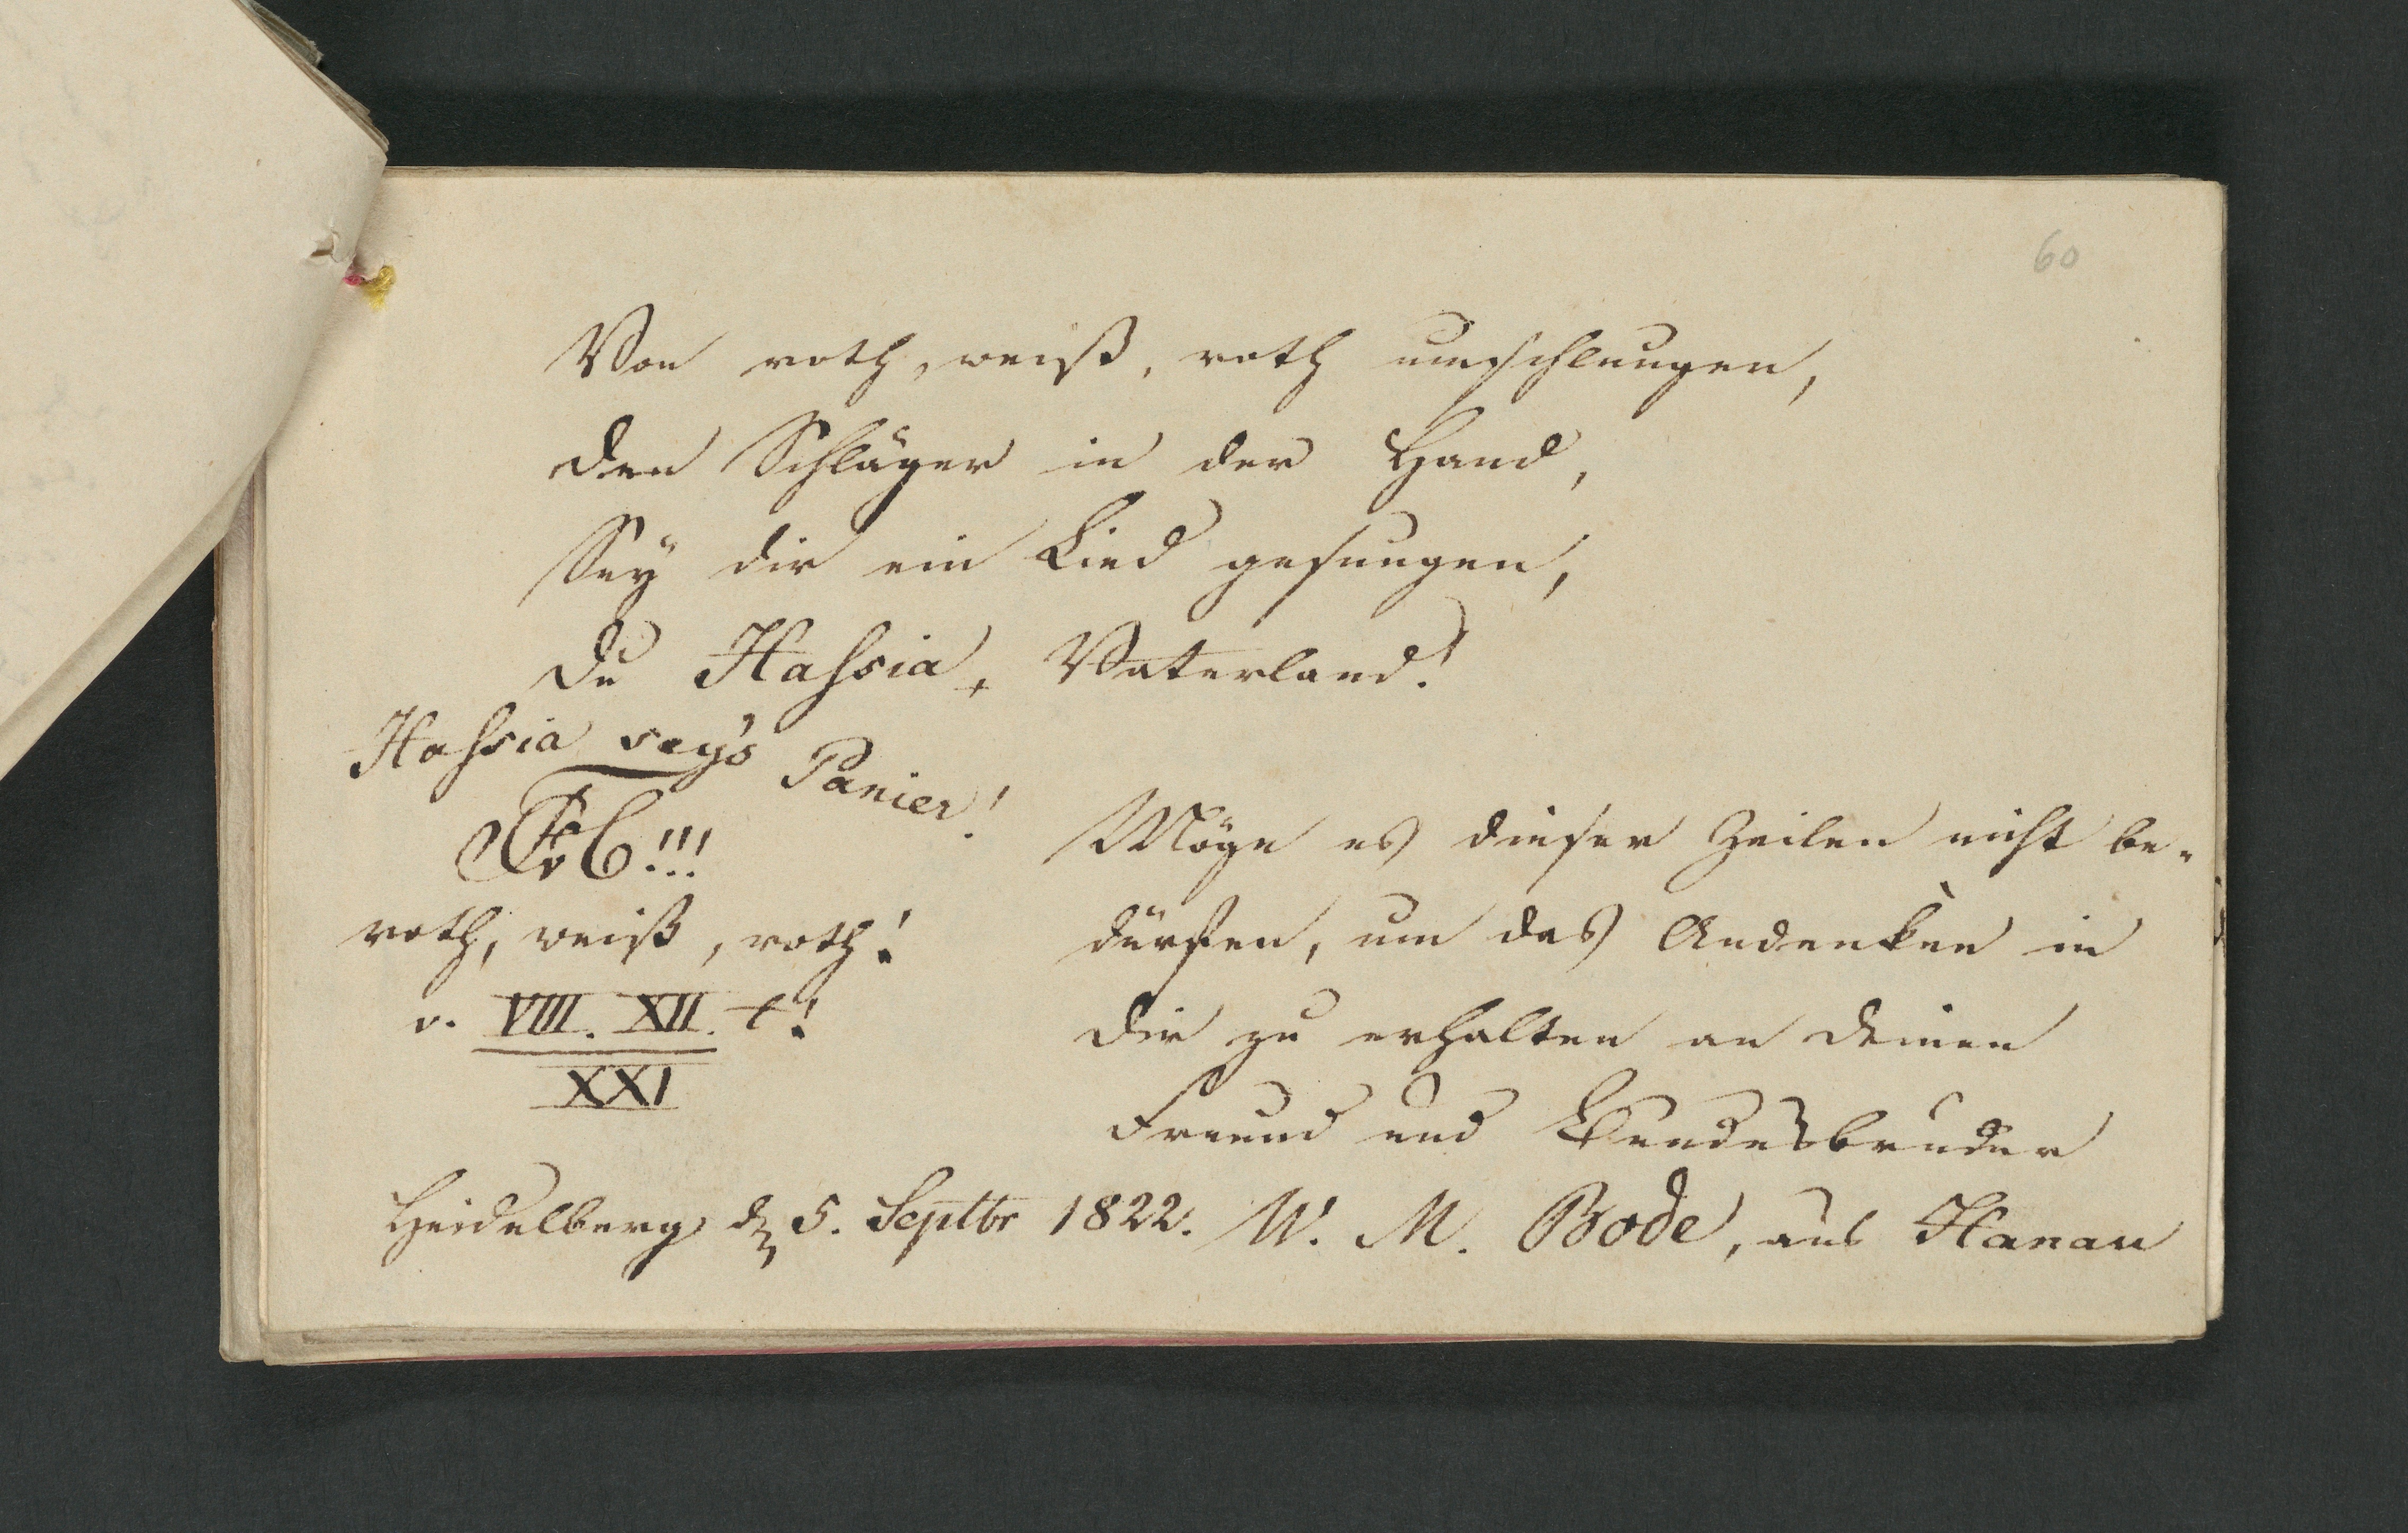 60
Von roth, weiß, roth umschlungen,
den Schläger in der Hand,
Sey dir ein Lied gesungen,
du Hassia, Vaterland!
Hassia sey's Panier!
!!!
roth, weiß, roth!
v. VIII. XII. t!
XXI
Möge es dieser Zeilen nicht be-
dürfen, um das Andenken in
dir zu erhalten an deinen
Freund und Bundesbruder
W. M. Bode, aus Hanau
Heidelberg d 5. Septbr 1822.